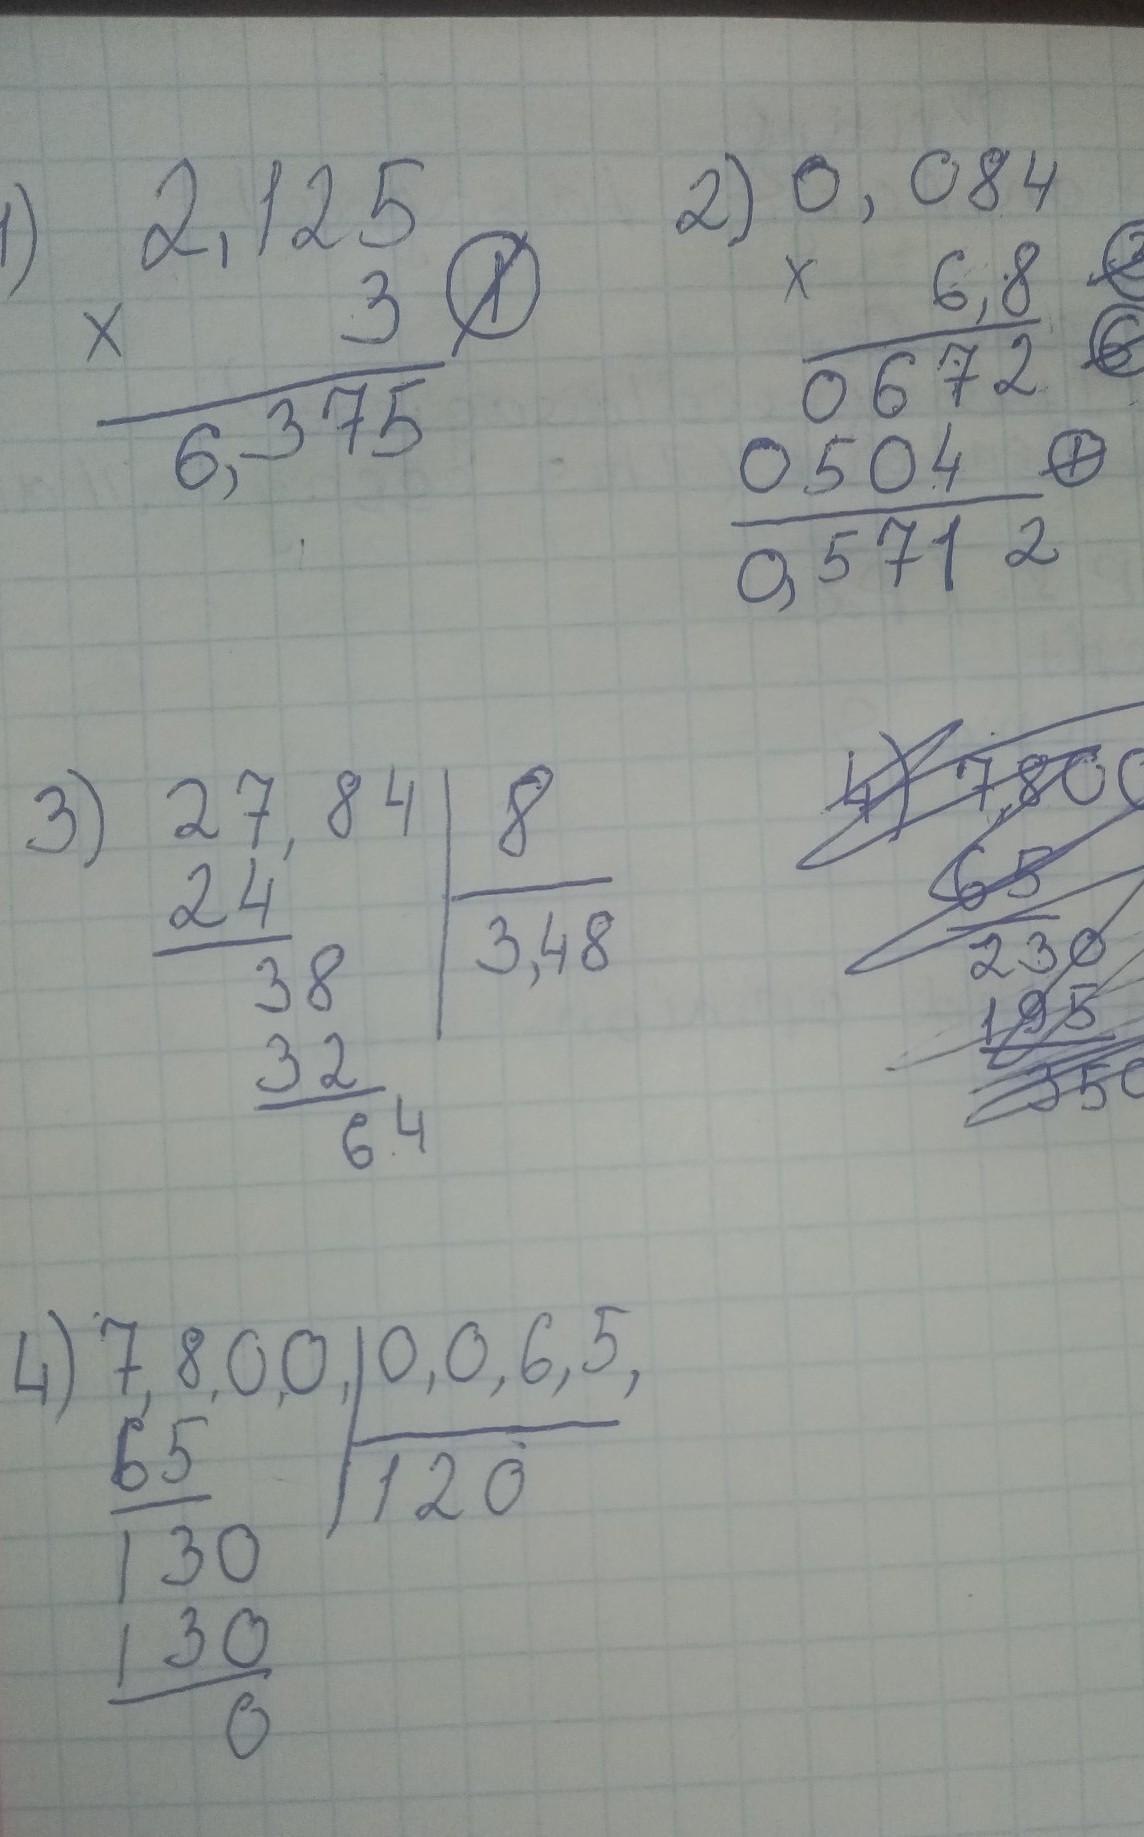 1) 2,125
× 3 1
6,375
2) 0,084
× 6,8
0672
0504 1
0,5712
3) 27,84 | 8
24
3,48
38
32
64
4) 7,800
65
230
195
350
4) 7,8,0,0, | 0,0,6,5,
65
120
130
130
0